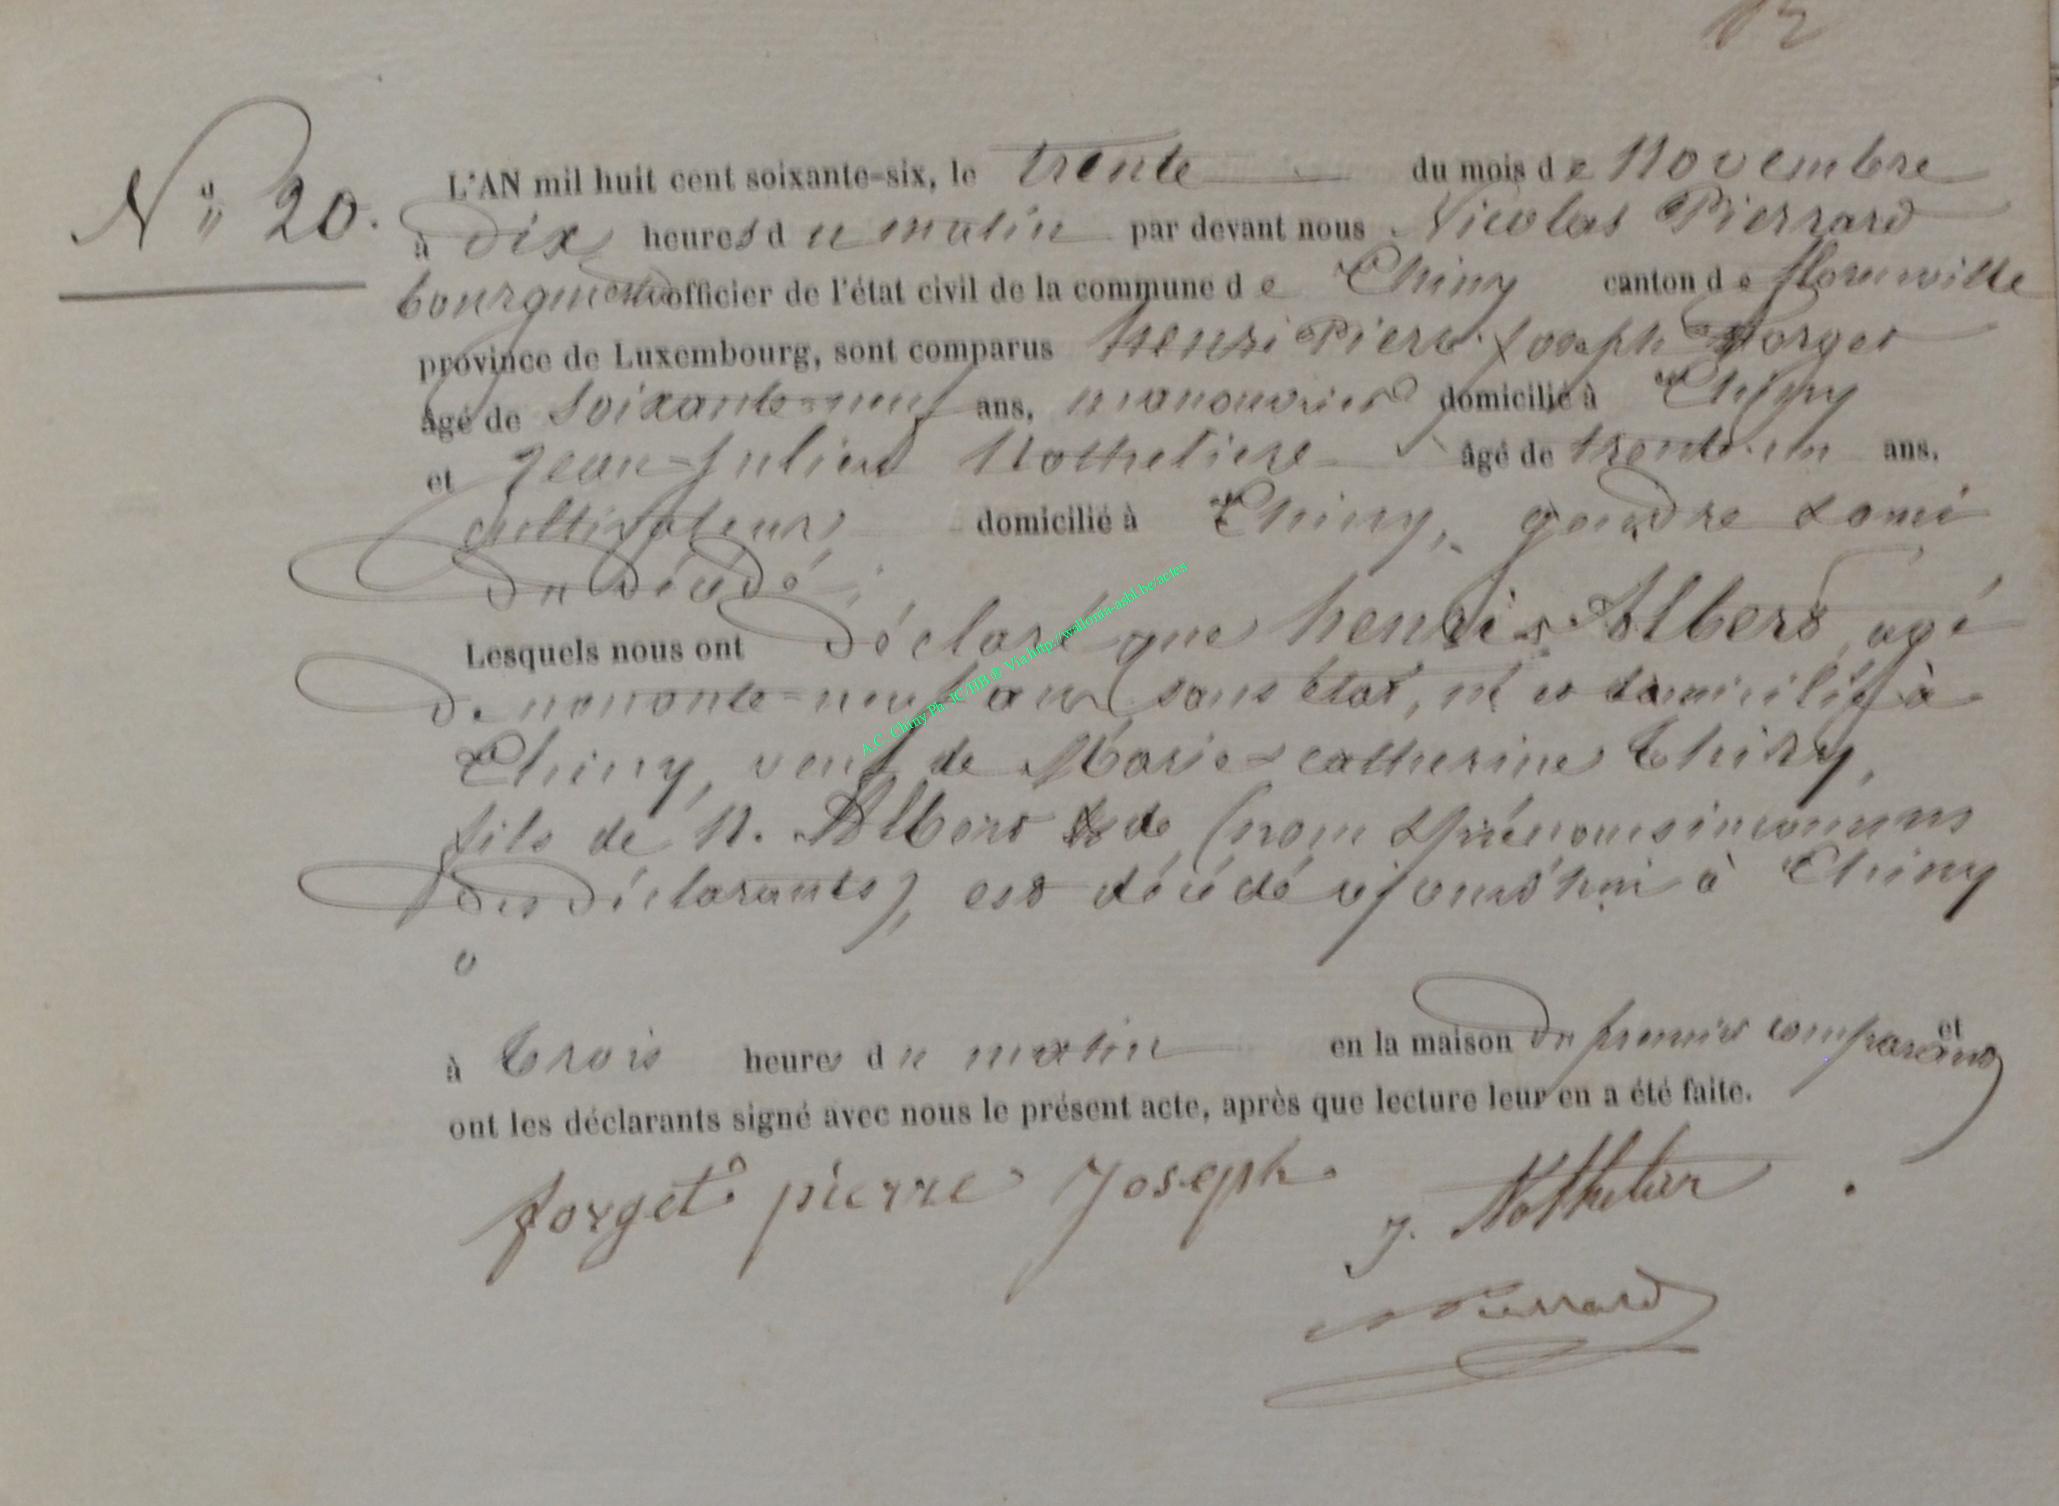 12
N° 20.
L'AN mil huit cent soixante-six, le trente du mois de Novembre
à dix heures du matin par devant nous Nicolas Pierrard
bourgmestre officier de l'état civil de la commune de Chiny canton de florenville
province de Luxembourg, sont comparus henri Pierre Joseph Forget
âgé de soixante-neuf ans, manouvrier domicilié à Chiny
et Jean-Julien Nothetiere âgé de trente-un ans.
cultivateur, domicilié à Chiny, gendre & ami
du décédé;
Lesquels nous ont déclaré que henri Albert agé
de nonante-neuf ans sans état, né et domicilié à
Chiny, veuf de Marie-catherine thiry,
fils de N. Albert & de (nom & prénoms inconnus
des déclarants), est décédé cejourd'hui à Chiny
à trois heures du matin en la maison du premier comparant et
ont les déclarants signé avec nous le présent acte, après que lecture leur en a été faite.
forget pierre Joseph. J. Nothetier.
Pierrard
A.C. Chiny Ph. JC/HB® Via http://wallonia-asbl.be/actes